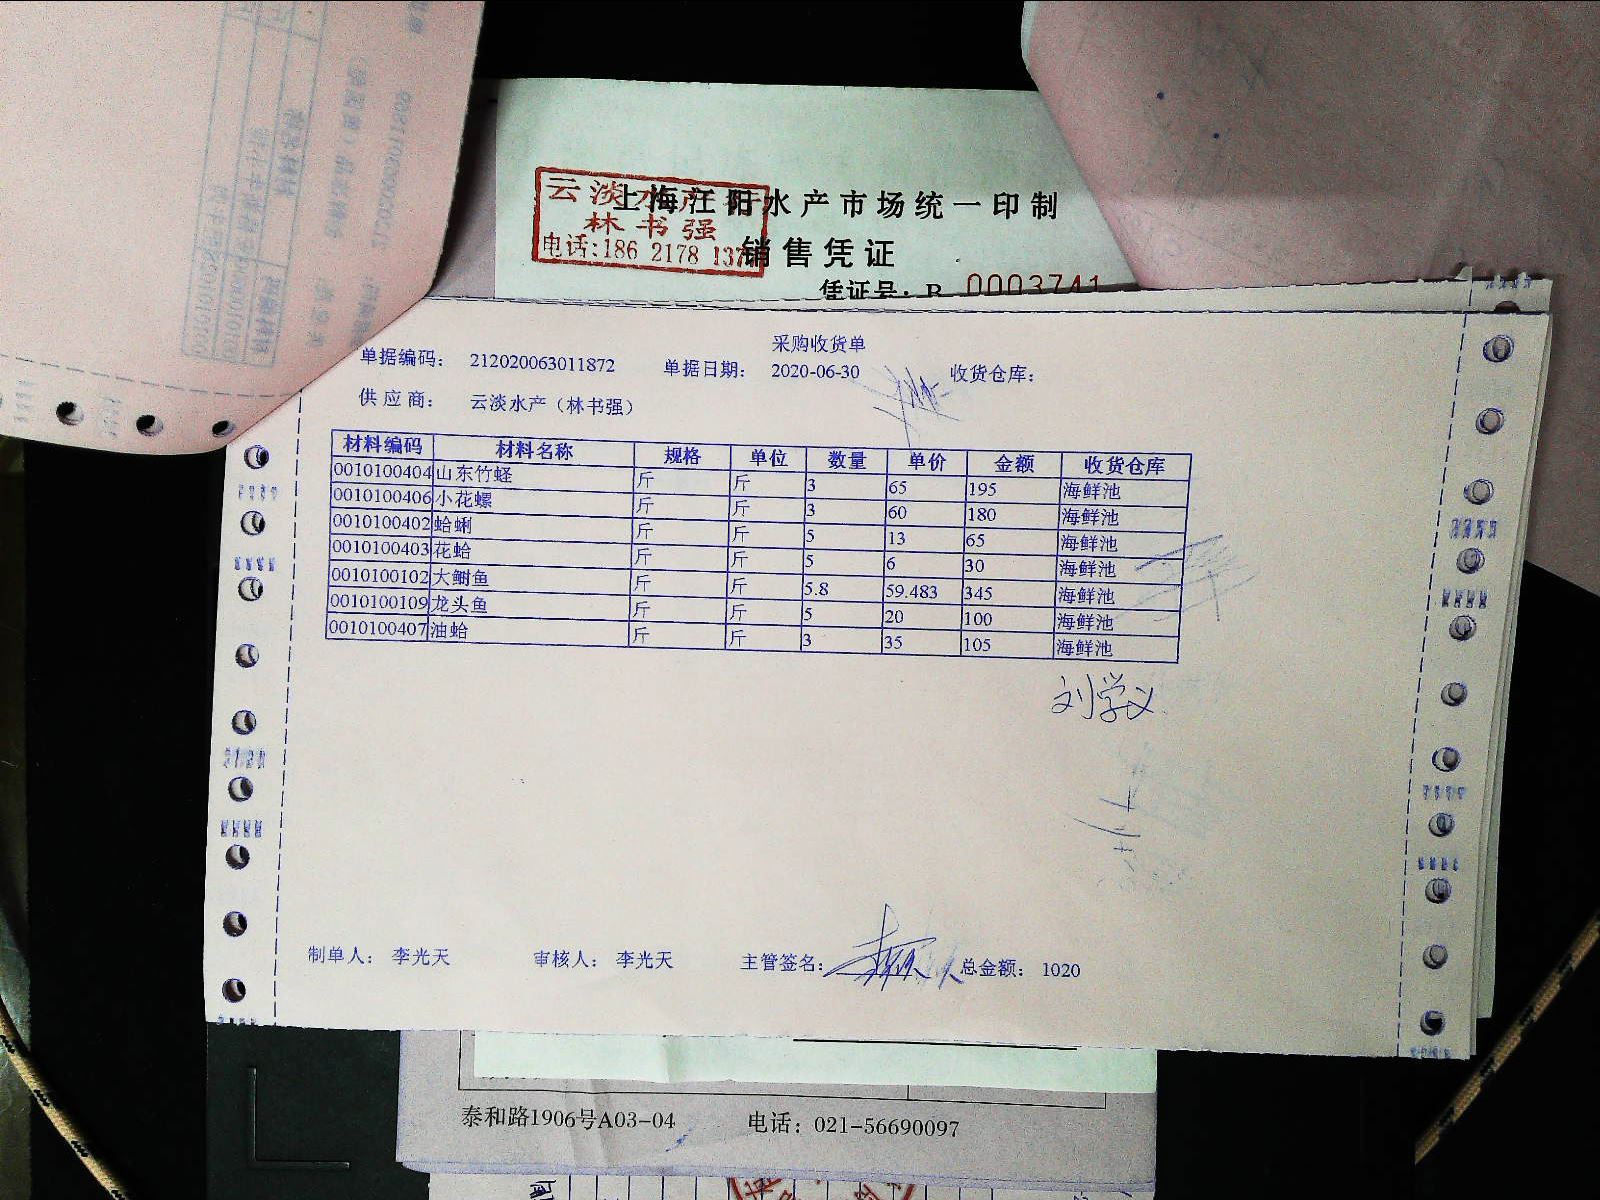 上海江阳水产市场统一印制
云淡水产行
林书强
电话:186 2178 137
销售凭证
凭证号: B 0003741
采购收货单
单据编码: 212020063011872 单据日期: 2020-06-30 收货仓库:
供应商: 云淡水产（林书强）
材料编码 材料名称 规格 单位 数量 单价 金额 收货仓库
0010100404 山东竹蛏 斤 斤 3 65 195 海鲜池
0010100406 小花螺 斤 斤 3 60 180 海鲜池
0010100402 蛤蜊 斤 斤 5 13 65 海鲜池
0010100403 花蛤 斤 斤 5 6 30 海鲜池
0010100102 大鲥鱼 斤 斤 5.8 59.483 345 海鲜池
0010100109 龙头鱼 斤 斤 5 20 100 海鲜池
0010100407 油蛤 斤 斤 3 35 105 海鲜池
刘学义
制单人: 李光天 审核人: 李光天 主管签名: 总金额: 1020
泰和路1906号A03-04 电话: 021-56690097